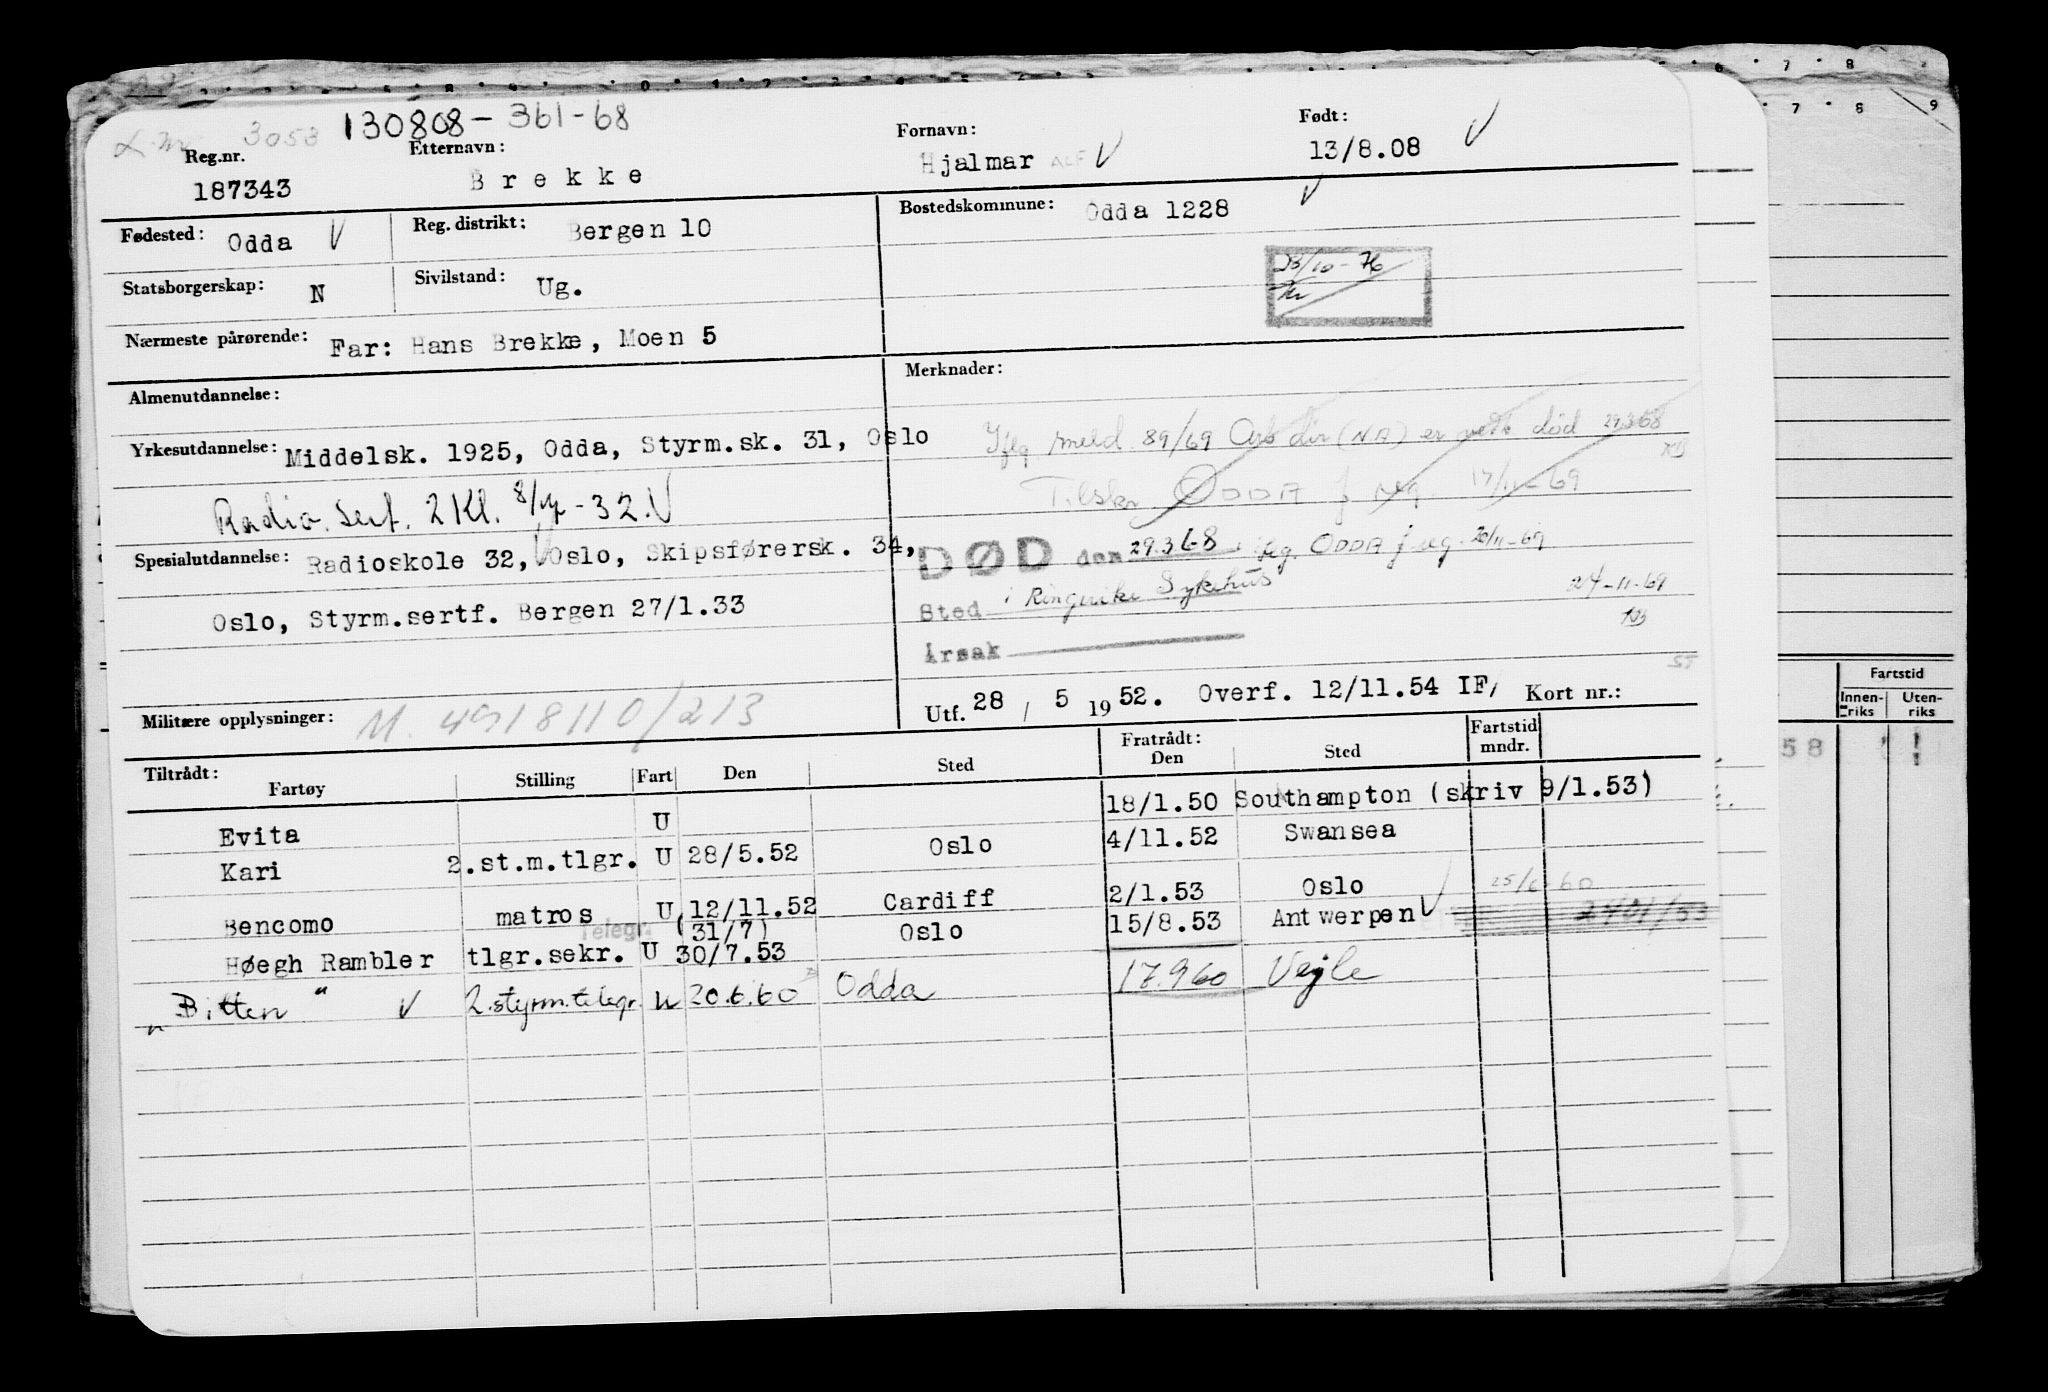 3053 130808-361-68
Reg.nr. Etternavn: Fornavn: Født:
187343 Brekke Hjalmar ALF 13/8.08
Fødested: Odda Reg. distrikt: Bergen 10 Bostedskommune: Odda 1228
Statsborgerskap: N Sivilstand: Ug.
23/10-76
Nærmeste pårørende: Far: Hans Brekke, Moen 5
Almenutdannelse: Merknader:
Yrkesutdannelse: Middelsk. 1925, Odda, Styrm.sk. 31, Oslo
Ifgl meld 89/69 Arb dir (NA) er død 29.3.68
Radio. Sert. 2 Kl. -32.
Tilskr. ODDA f reg. 17/11-69
Spesialutdannelse: Radioskole 32, Oslo, Skipsførersk. 34,
DØD den 29.3.68 ODDA f reg. 20/11-69
Oslo, Styrm.sertf. Bergen 27/1.33
Sted i Ringerike Sykehus 24-11-69
Årsak
Militære opplysninger: M. 4918110/213
Utf. 28 / 5 1952. Overf. 12/11.54 IF/ Kort nr.:
Tiltrådt: Fratrådt: Fartstid
Fartøy Stilling Fart Den Sted Den Sted mndr.
Evita U 18/1.50 Southampton (skriv 9/1.53)
Kari 2.st.m.tlgr. U 28/5.52 Oslo 4/11.52 Swansea
Bencomo matros U 12/11.52 Cardiff 2/1.53 Oslo 25/6-60
Telegr. (31/7)
Høegh Rambler tlgr.sekr. U 30/7.53 Oslo 15/8.53 Antwerpen
"Bitten" 2.styrm.telegr. U 20.6.60 Odda 17.9.60 Vejle
6 7 8
7 8 9
Fartstid
Innen-riks Uten-riks
58